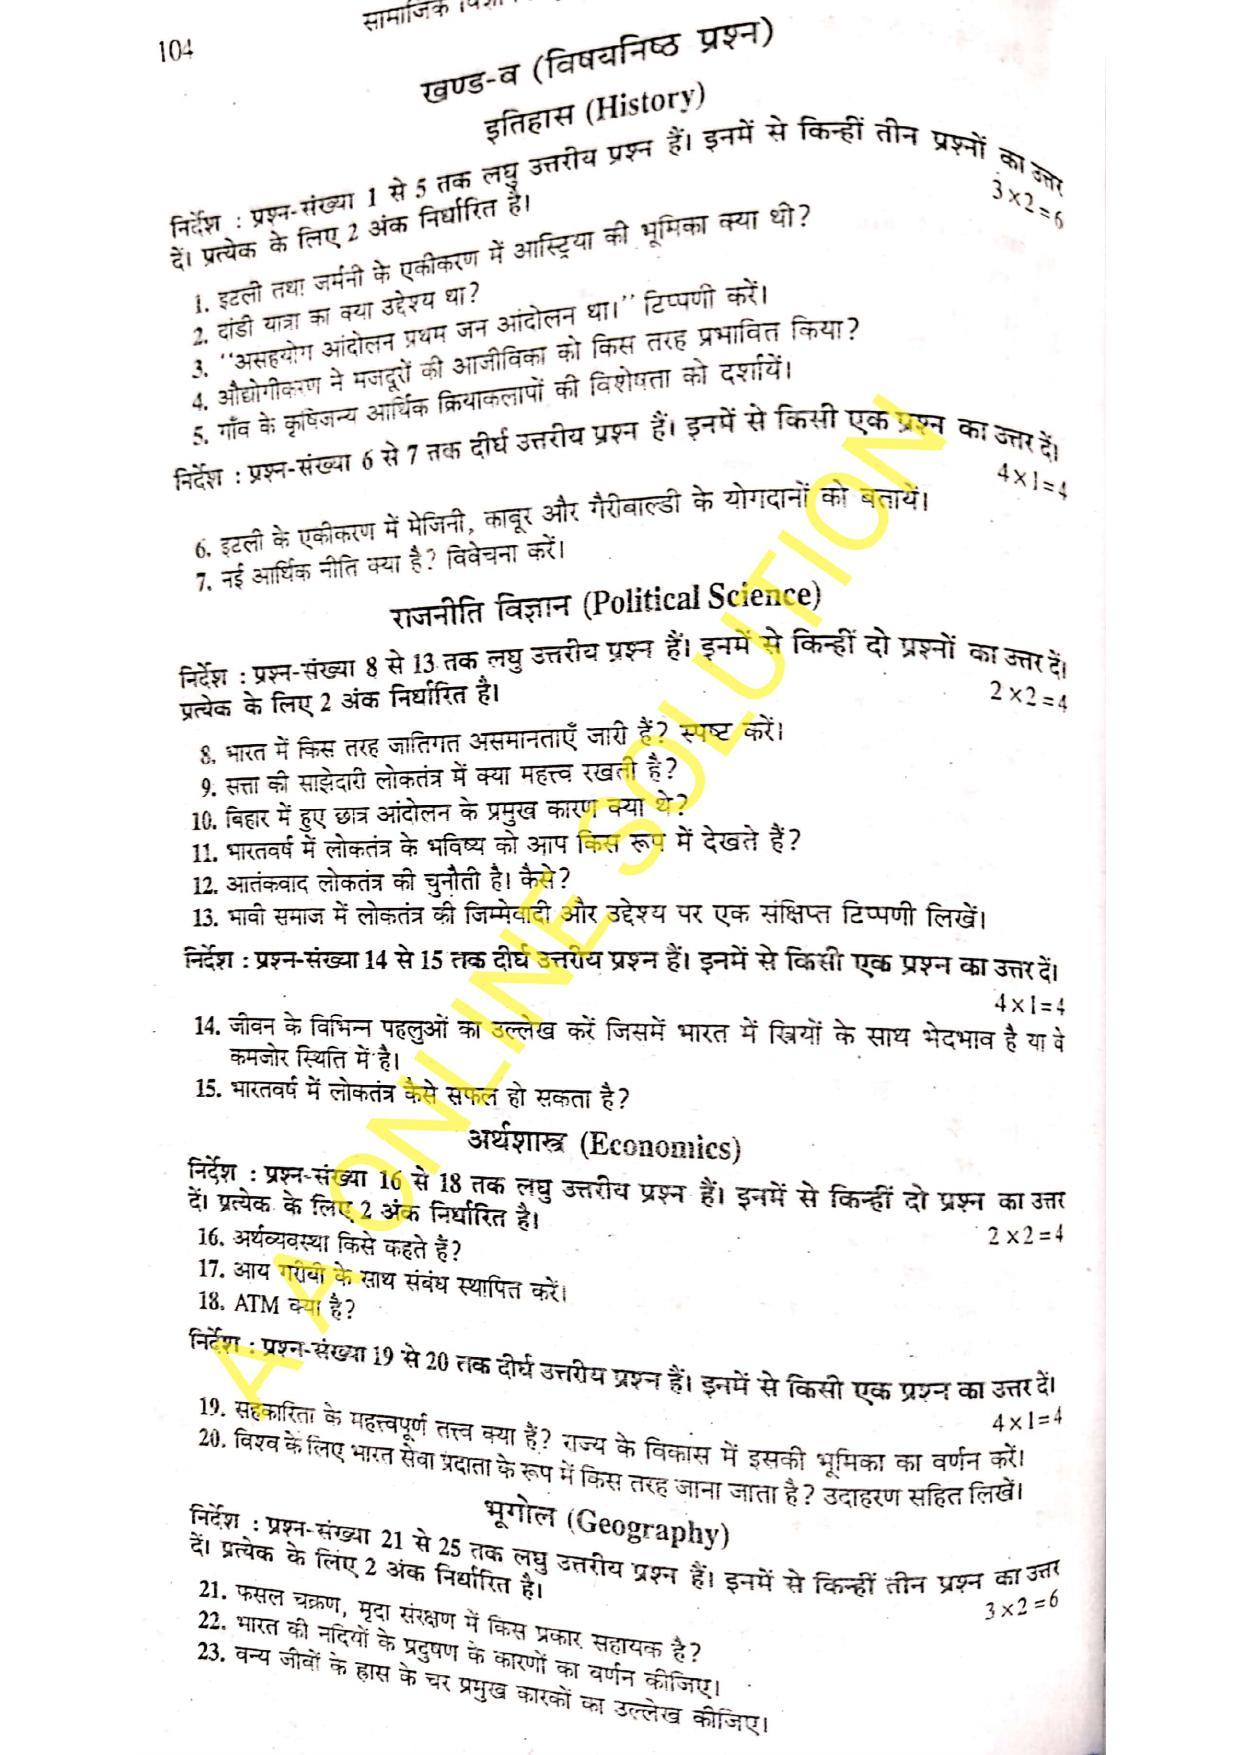 सामाजिक
104
खण्ड-ब (विषयनिष्ठ प्रश्न)
इतिहास (History)
निर्देश : प्रश्न-संख्या 1 से 5 तक लघु उत्तरीय प्रश्न हैं। इनमें से किन्हीं तीन प्रश्नों का उत्तर
दें। प्रत्येक के लिए 2 अंक निर्धारित है।
3×2=6
1. इटली तथा जर्मनी के एकीकरण में आस्ट्रिया की भूमिका क्या थी?
2. दांडी यात्रा का क्या उद्देश्य था?
3. ''असहयोग आंदोलन प्रथम जन आंदोलन था।'' टिप्पणी करें।
4. औद्योगीकरण ने मजदूरों की आजीविका को किस तरह प्रभावित किया?
5. गाँव के कृषिजन्य आर्थिक क्रियाकलापों की विशेषता को दर्शायें।
निर्देश : प्रश्न-संख्या 6 से 7 तक दीर्घ उत्तरीय प्रश्न हैं। इनमें से किसी एक प्रश्न का उत्तर दें।
4×1=4
6. इटली के एकीकरण में मेजिनी, काबूर और गैरीबाल्डी के योगदानों को बतायें।
7. नई आर्थिक नीति क्या है? विवेचना करें।
राजनीति विज्ञान (Political Science)
निर्देश : प्रश्न-संख्या 8 से 13 तक लघु उत्तरीय प्रश्न हैं। इनमें से किन्हीं दो प्रश्नों का उत्तर दें।
प्रत्येक के लिए 2 अंक निर्धारित है।
2×2=4
8. भारत में किस तरह जातिगत असमानताएँ जारी हैं? स्पष्ट करें।
9. सत्ता की साझेदारी लोकतंत्र में क्या महत्त्व रखती है?
10. बिहार में हुए छात्र आंदोलन के प्रमुख कारण क्या थे?
11. भारतवर्ष में लोकतंत्र के भविष्य को आप किस रूप में देखते हैं?
12. आतंकवाद लोकतंत्र की चुनौती है। कैसे?
13. भावी समाज में लोकतंत्र की जिम्मेवादी और उद्देश्य पर एक संक्षिप्त टिप्पणी लिखें।
निर्देश : प्रश्न-संख्या 14 से 15 तक दीर्घ उत्तरीय प्रश्न हैं। इनमें से किसी एक प्रश्न का उत्तर दें।
4×1=4
14. जीवन के विभिन्न पहलुओं का उल्लेख करें जिसमें भारत में स्त्रियों के साथ भेदभाव है या वे
कमजोर स्थिति में है।
15. भारतवर्ष में लोकतंत्र कैसे सफल हो सकता है?
अर्थशास्त्र (Economics)
निर्देश : प्रश्न-संख्या 16 से 18 तक लघु उत्तरीय प्रश्न हैं। इनमें से किन्हीं दो प्रश्न का उत्तर
दें। प्रत्येक के लिए 2 अंक निर्धारित है।
2×2=4
16. अर्थव्यवस्था किसे कहते हैं?
17. आय गरीबी के साथ संबंध स्थापित करें।
18. ATM क्या है?
निर्देश : प्रश्न-संख्या 19 से 20 तक दीर्घ उत्तरीय प्रश्न हैं। इनमें से किसी एक प्रश्न का उत्तर दें।
4×1=4
19. सहकारिता के महत्त्वपूर्ण तत्त्व क्या हैं? राज्य के विकास में इसकी भूमिका का वर्णन करें।
20. विश्व के लिए भारत सेवा प्रदाता के रूप में किस तरह जाना जाता है? उदाहरण सहित लिखें।
भूगोल (Geography)
निर्देश : प्रश्न-संख्या 21 से 25 तक लघु उत्तरीय प्रश्न हैं। इनमें से किन्हीं तीन प्रश्न का उत्तर
दें। प्रत्येक के लिए 2 अंक निर्धारित है।
3×2=6
21. फसल चक्रण, मृदा संरक्षण में किस प्रकार सहायक है?
22. भारत की नदियों के प्रदुषण के कारणों का वर्णन कीजिए।
23. वन्य जीवों के ह्रास के चर प्रमुख कारकों का उल्लेख कीजिए।
A A ONLINE SOLUTION